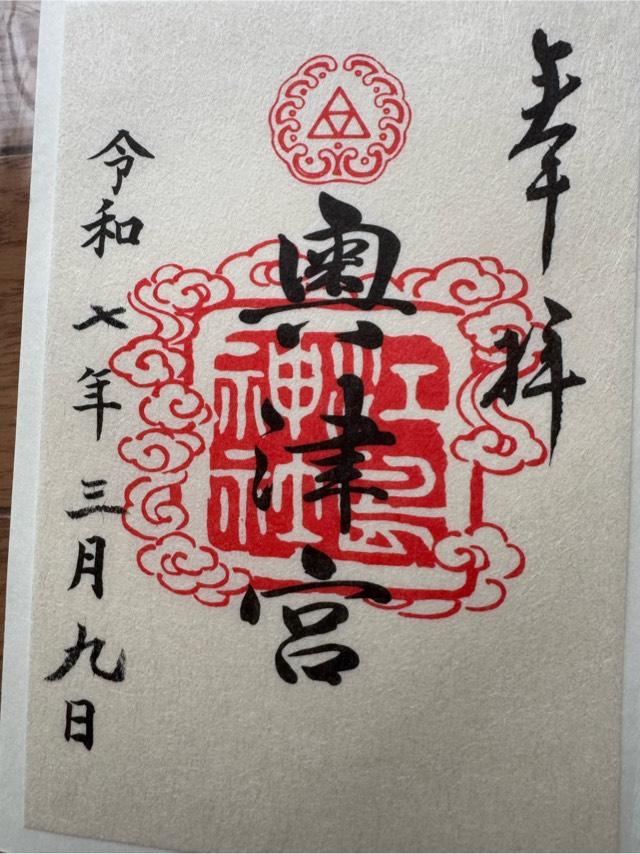 奉拝
奥津宮
江島
神社
令和七年三月九日